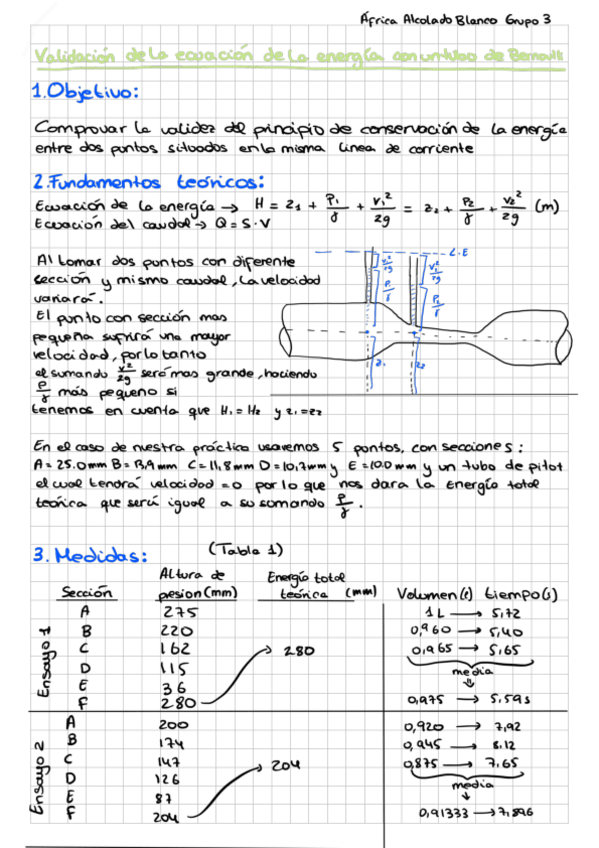 África Alcolado Blanco Grupo 3
Validación de la ecuación de la energía con un tubo de Bernoulli
1. Objetivo:
Comprovar la validez del principio de conservación de la energía
entre dos puntos situados en la misma linea de corriente
2. Fundamentos teóricos:
Ecuación de la energía → H = z1 + P1/γ + V1²/2g = z2 + P2/γ + V2²/2g (m)
Ecuación del caudal → Q = S·V
Al tomar dos puntos con diferente
sección y mismo caudal, la velocidad
variará.
El punto con sección mas
pequeña sufrirá una mayor
velocidad, por lo tanto
el sumando V²/2g será mas grande, haciendo
P/γ más pequeño si
tenemos en cuenta que H1=H2 y z1=z2
L.E
V1²/2g V2²/2g
P1/γ
z1 z2
En el caso de nuestra práctica usaremos 5 puntos, con secciones:
A=25.0mm B=13,9mm C=11,8mm D=10,7mm y E=10.0mm y un tubo de pitot
el cual tendrá velocidad =0 por lo que nos dara la Energía total
teórica que será igual a su sumando P/γ.
3. Medidas: (Tabla 1)
Sección Altura de presion (mm) Energía total teórica (mm) Volumen(l) tiempo(s)
Ensayo 1
A 275 1L → 5,72
B 220 0,960 → 5,40
C 162 280 0,965 → 5,65
D 115 media
E 36
F 280 0,975 → 5.593
Ensayo 2
A 200 0,920 → 7,92
B 174 0,945 → 8.12
C 147 204 0,875 → 7,65
D 126 media
E 87
F 204 0,91333 → 7,896